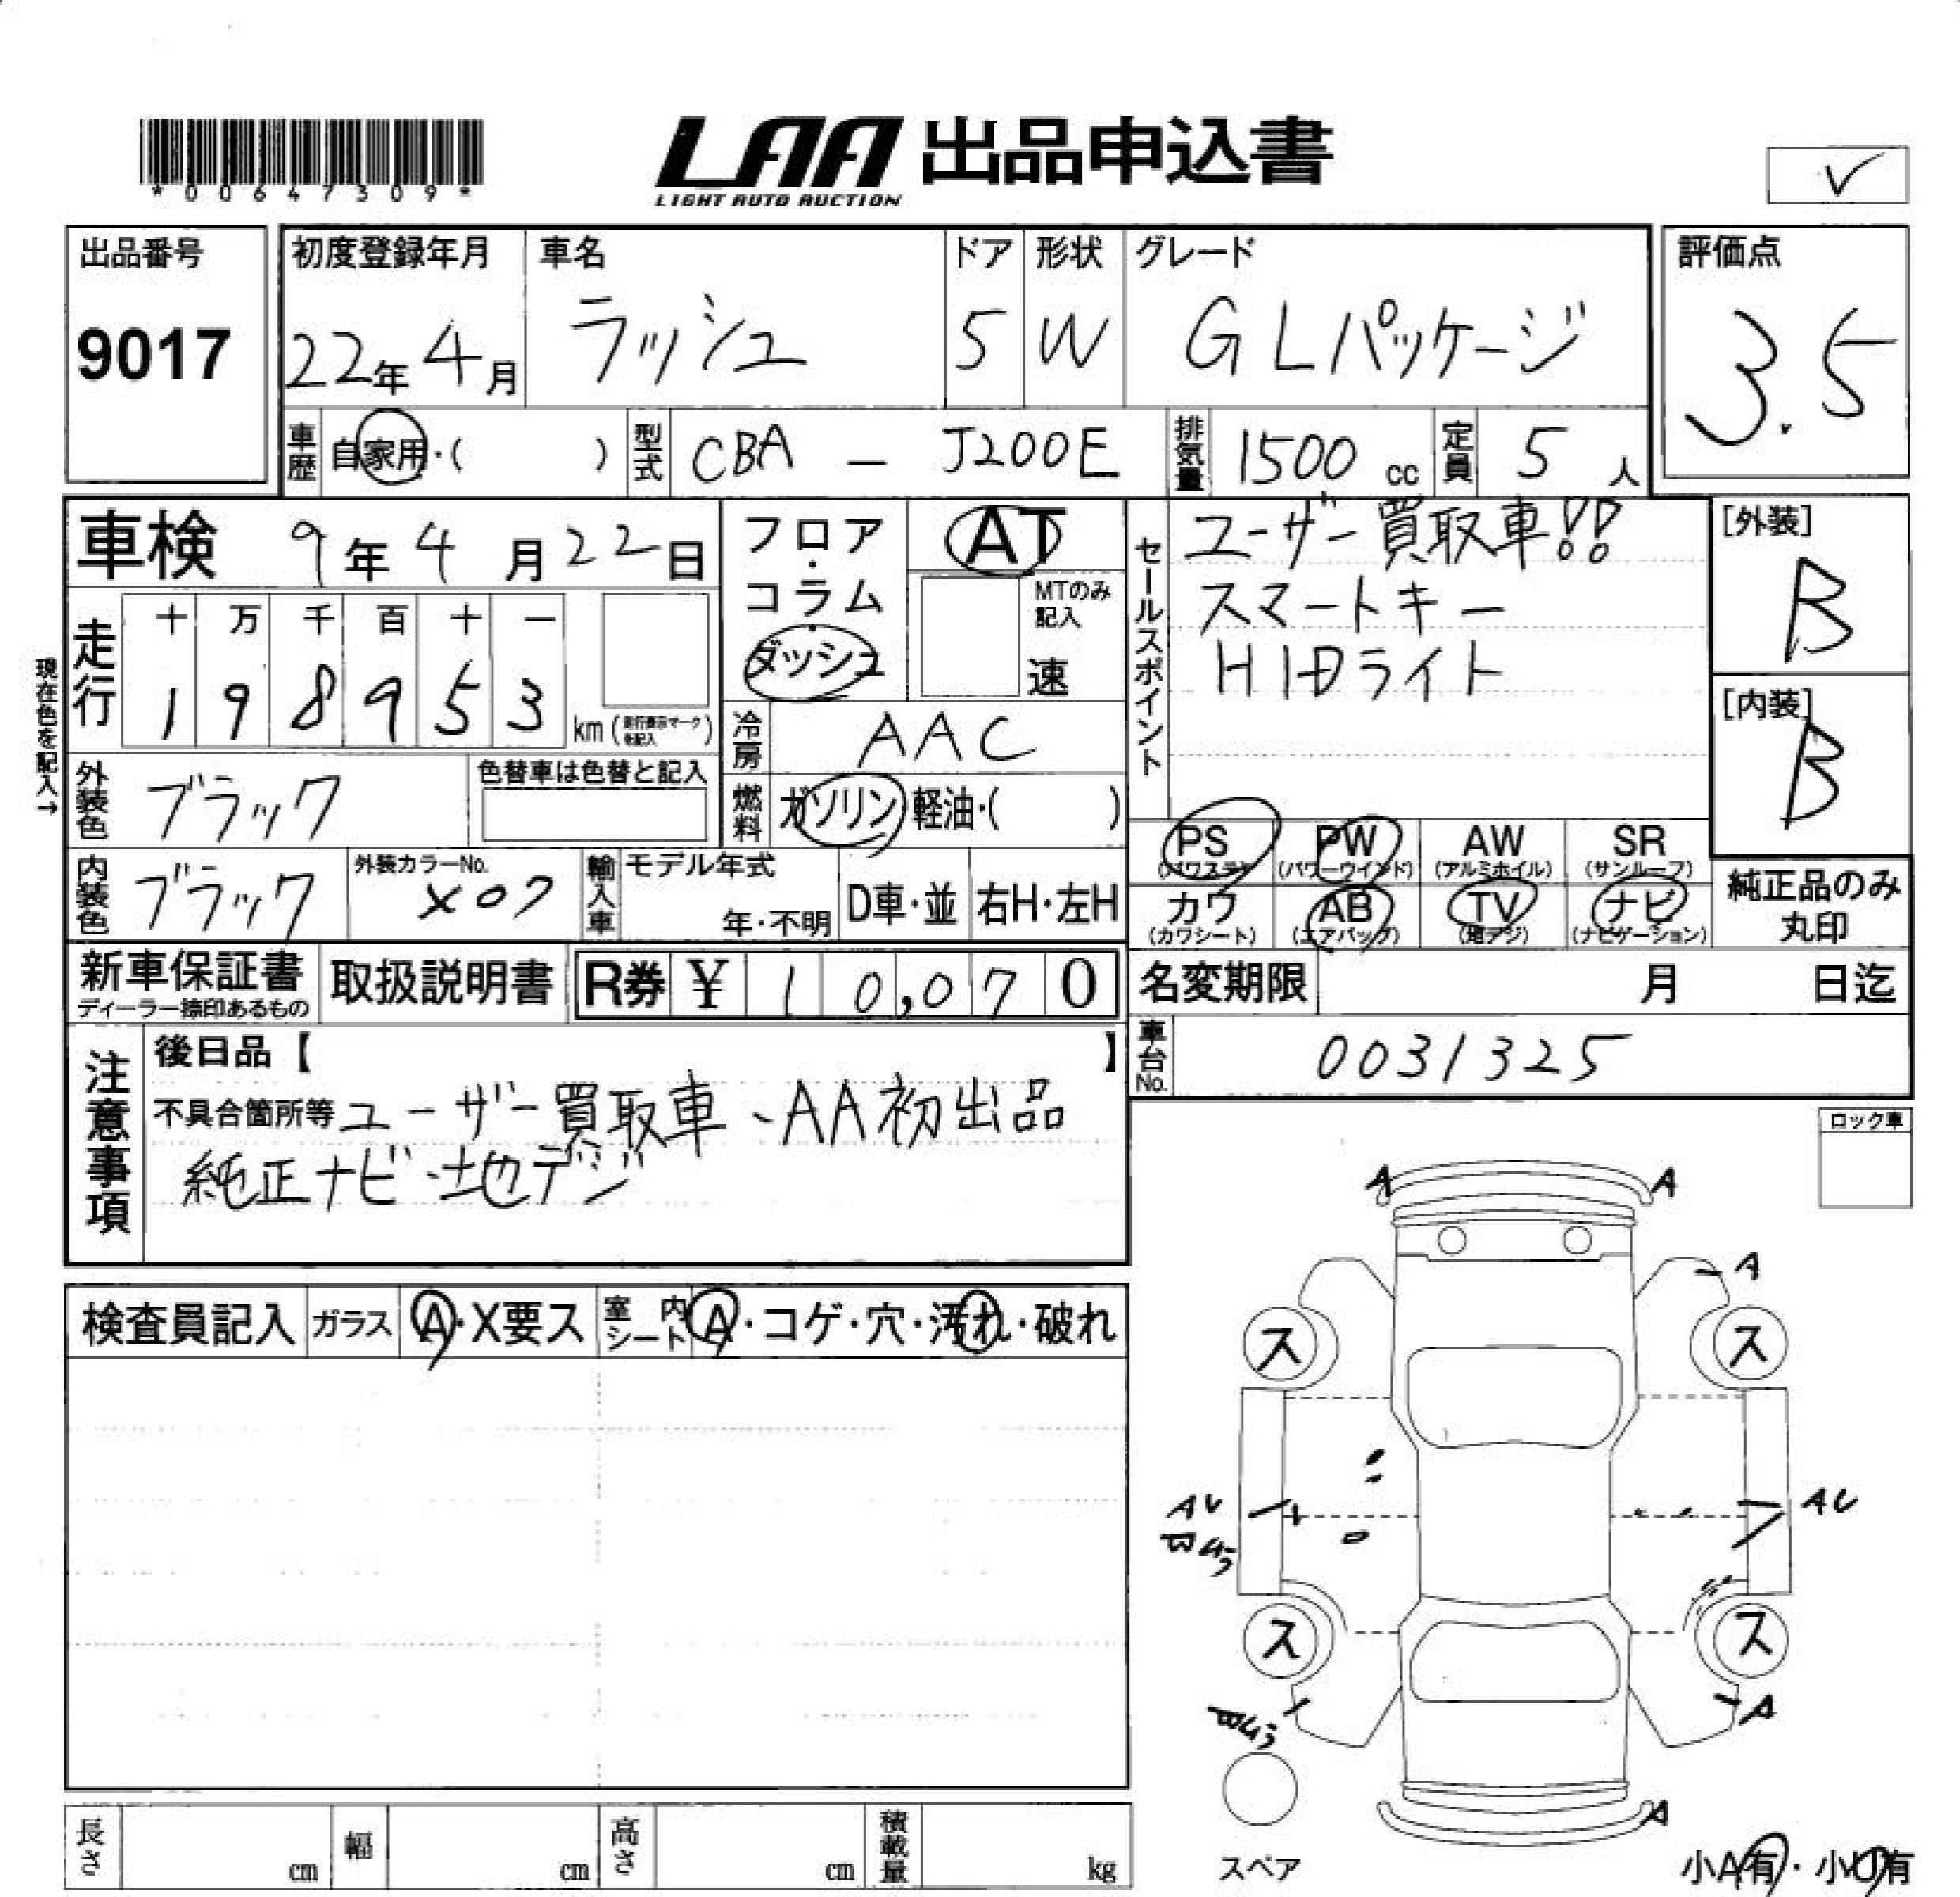 *00647309*
LAA 出品申込書
LIGHT AUTO AUCTION
✓
出品番号
9017
初度登録年月
22年4月
車名
ラッシュ
ドア
5
形状
W
グレード
G Lパッケージ
評価点
3.5
車歴
自家用・( )
型式
CBA - J200E
排気量
1500 cc
定員
5 人
車検 9年4月22日
現在色を記入→
走行
十 万 千 百 十 一
1 9 8 9 5 3
km (走行表示マークを記入)
フロア・コラム・ダッシュ
AT
MTのみ記入
速
冷房
AAC
燃料
ガソリン・軽油・( )
外装色
ブラック
色替車は色替と記入
内装色
ブラック
外装カラーNo.
X07
輸入車
モデル年式
年・不明
D車・並
右H・左H
セールスポイント
ユーザー買取車!!
スマートキー
HIDライト
[外装]
B
[内装]
B
PS
(パワステ)
PW
(パワーウインド)
AW
(アルミホイル)
SR
(サンルーフ)
カワ
(カワシート)
AB
(エアバック)
TV
(地デジ)
ナビ
(ナビゲーション)
純正品のみ
丸印
新車保証書
ディーラー捺印あるもの
取扱説明書
R券 ¥ 10,070
名変期限 月 日迄
車台No.
0031325
注意事項
後日品【 】
不具合箇所等 ユーザー買取車、AA初出品
純正ナビ・地デジ
ロック車
検査員記入
ガラス
A・X要ス
室内シート
A・コゲ・穴・汚れ・破れ
A A
A
ス ス
AU AU
ス ス
A
A
スペア
小A有・小U有
長さ cm
幅 cm
高さ cm
積載量 kg